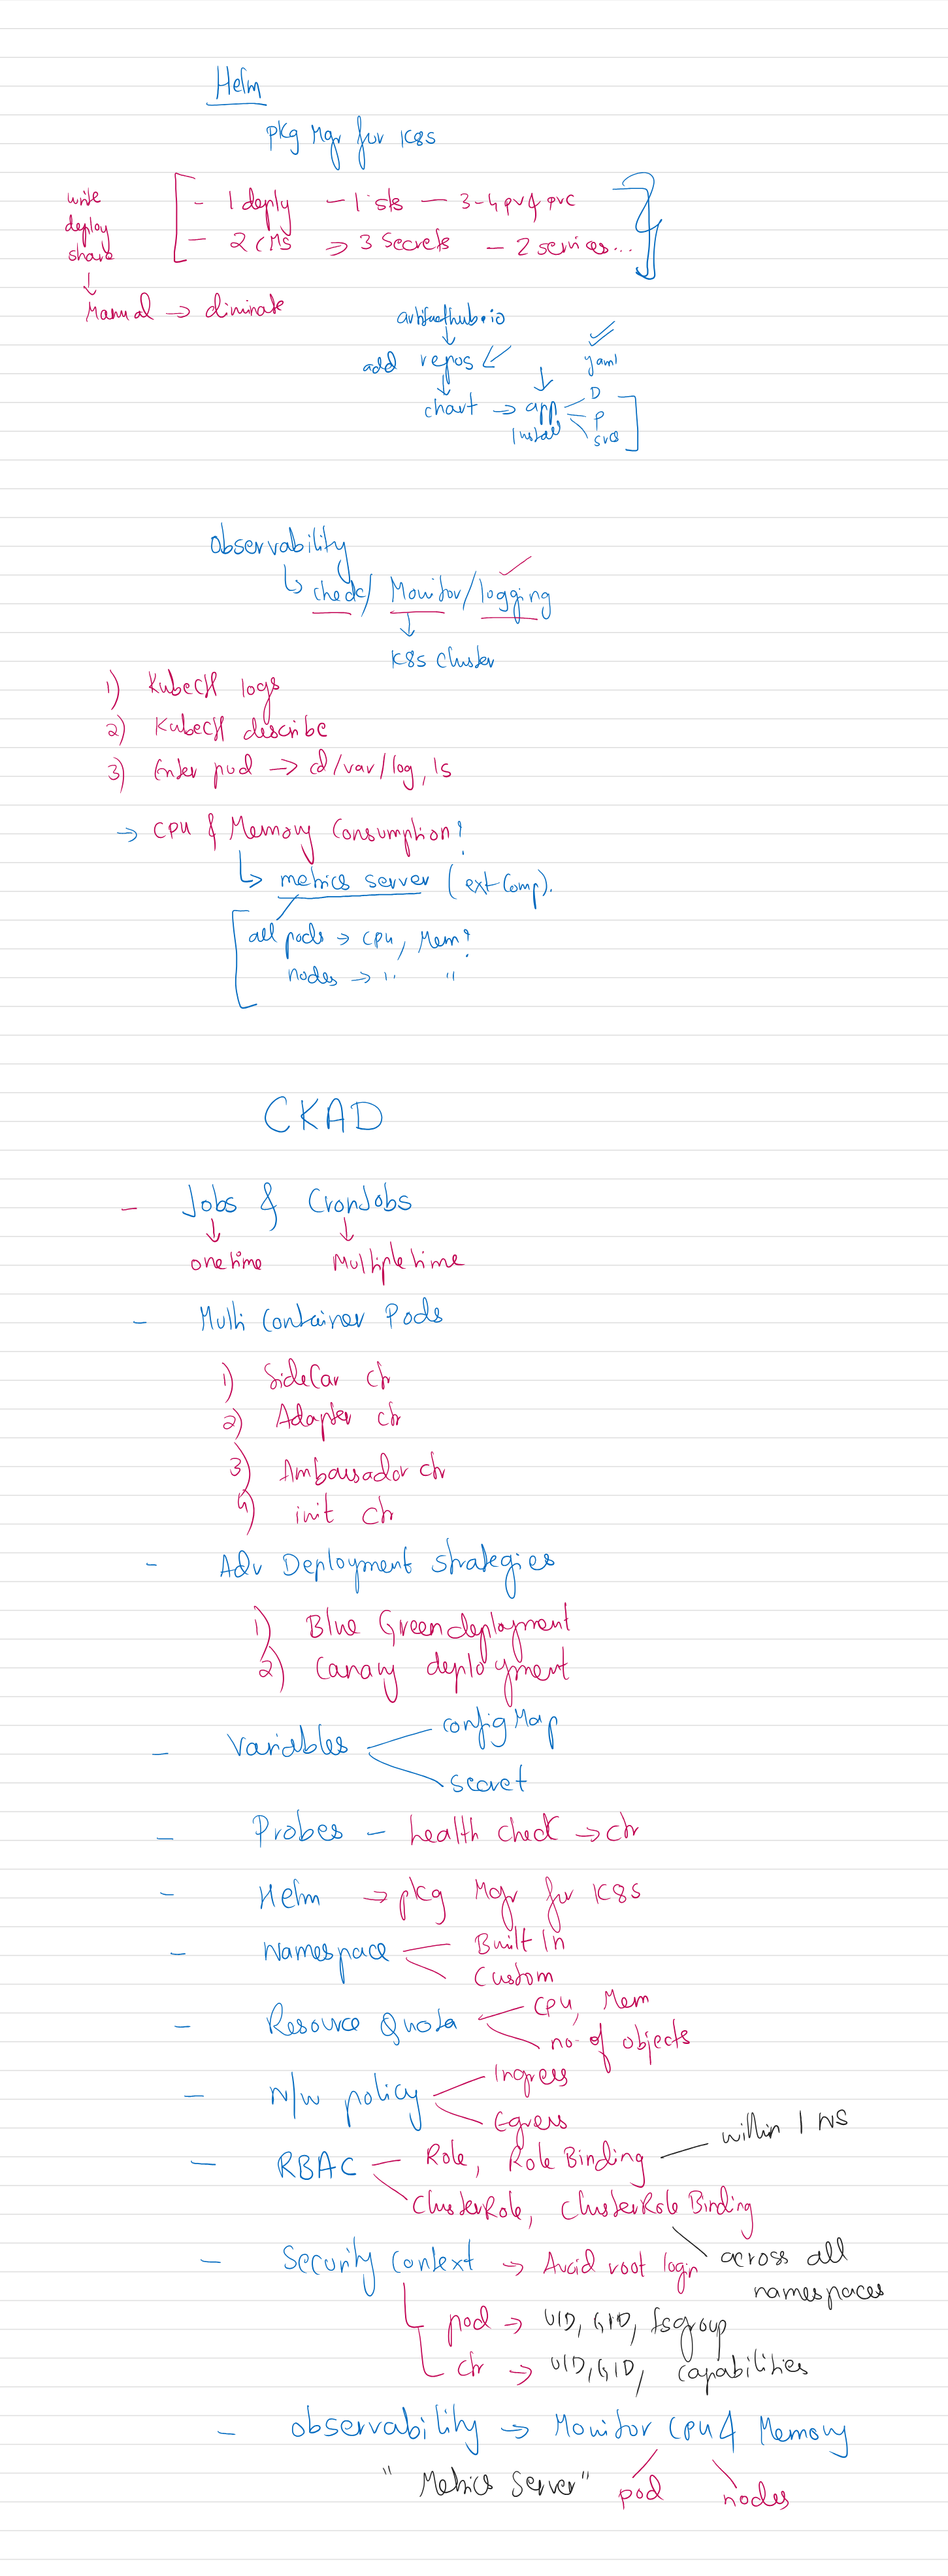 Helm
pkg Mgr for K8s
write
deploy
share
- 1 deply - 1 sts - 3-4 pv & pvc
- 2 CMs → 3 Secrets - 2 services...
↓
Manual → eliminate
artifacthub.io
↓
add repos
yaml
↓
chart → app
D
P
svcs
Install
Observability
↳ check/ Monitor/logging
↓
K8s cluster
1) Kubectl logs
2) Kubectl describe
3) Enter pod → cd/var/log, ls
→ CPU & Memory Consumption?
↳ metrics server (ext Comp).
all pods → CPU, Mem?
nodes → " "
CKAD
- Jobs & CronJobs
↓ ↓
one time Multiple time
- Multi Container Pods
1) SideCar ctr
2) Adapter ctr
3) Ambassador ctr
4) init ctr
- Adv Deployment strategies
1) Blue Green deployment
2) Canary deployment
- Variables
configMap
secret
- Probes - health check → ctr
- Helm → pkg Mgr for K8s
- Namespace
Built In
Custom
- Resource Quota
CPU, Mem
no. of objects
- N/w policy
Ingress
Egress
- RBAC
Role, Role Binding
within 1 NS
ClusterRole, ClusterRole Binding
across all
namespaces
- Security Context → Avoid root login
pod → UID, GID, fsgroup
ctr → UID, GID, capabilities
- Observability → Monitor CPU & Memory
"Metrics Server"
pod
nodes